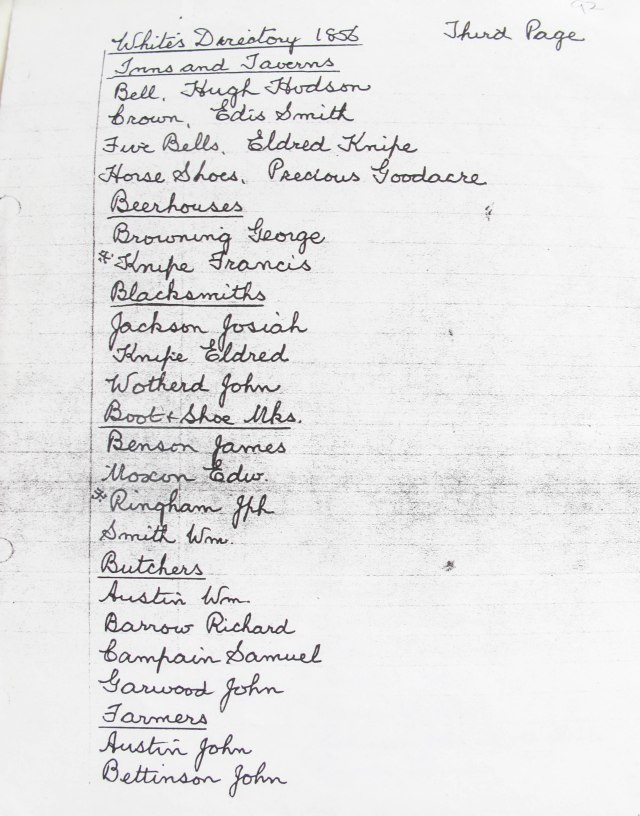 White's Directory 1856 Third Page
Inns and Taverns
Bell, Hugh Hudson
Crown, Edis Smith
Five Bells, Eldred Knipe
Horse Shoes, Precious Goodacre
Beerhouses
Browning George
*Knipe Francis
Blacksmiths
Jackson Josiah
Knipe Eldred
Wotherd John
Boot & Shoe Mks.
Benson James
Moxon Edw.
*Ringham Jph
Smith Wm.
Butchers
Austin Wm.
Barrow Richard
Campain Samuel
Garwood John
Farmers
Austin John
Bettinson John